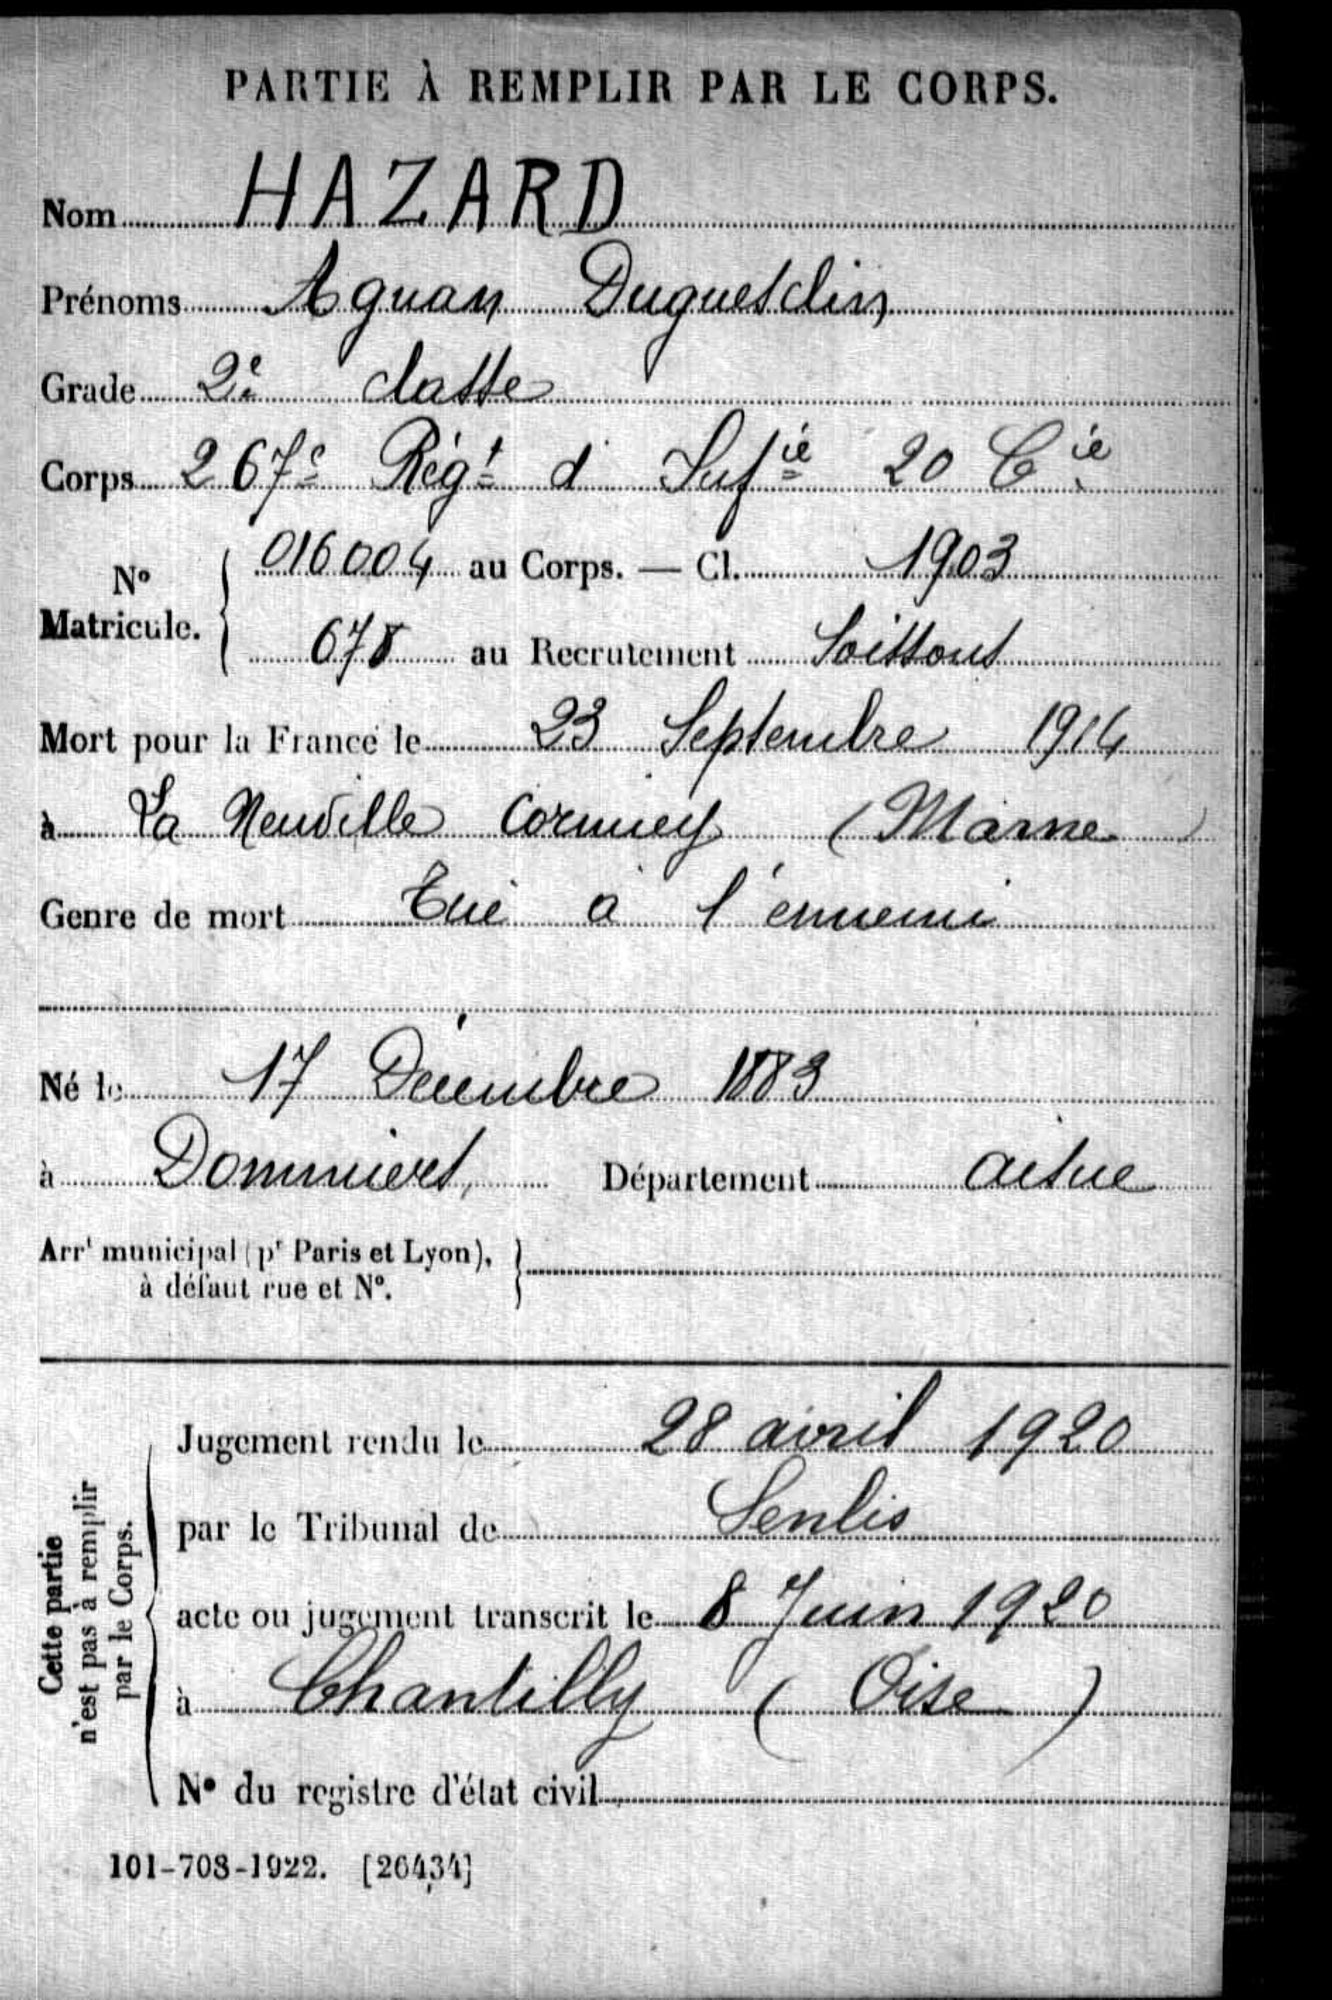 PARTIE À REMPLIR PAR LE CORPS.
Nom HAZARD
Prénoms Aguan Duguesclin
Grade 2e classe
Corps 267e Régt d'Infie 20 Cie
No Matricule. 016004 au Corps. — Cl. 1903
678 au Recrutement Soissons
Mort pour la France le 23 Septembre 1914
à La Neuville Cormicy (Marne)
Genre de mort Tué à l'ennemi
Né le 17 Décembre 1883
à Dommiers, Département Aisne
Arrt municipal (pr Paris et Lyon),
à défaut rue et No.
Cette partie
n'est pas à remplir
par le Corps.
Jugement rendu le 28 avril 1920
par le Tribunal de Senlis
acte ou jugement transcrit le 8 Juin 1920
à Chantilly (Oise)
No du registre d'état civil
101-708-1922. [26434]